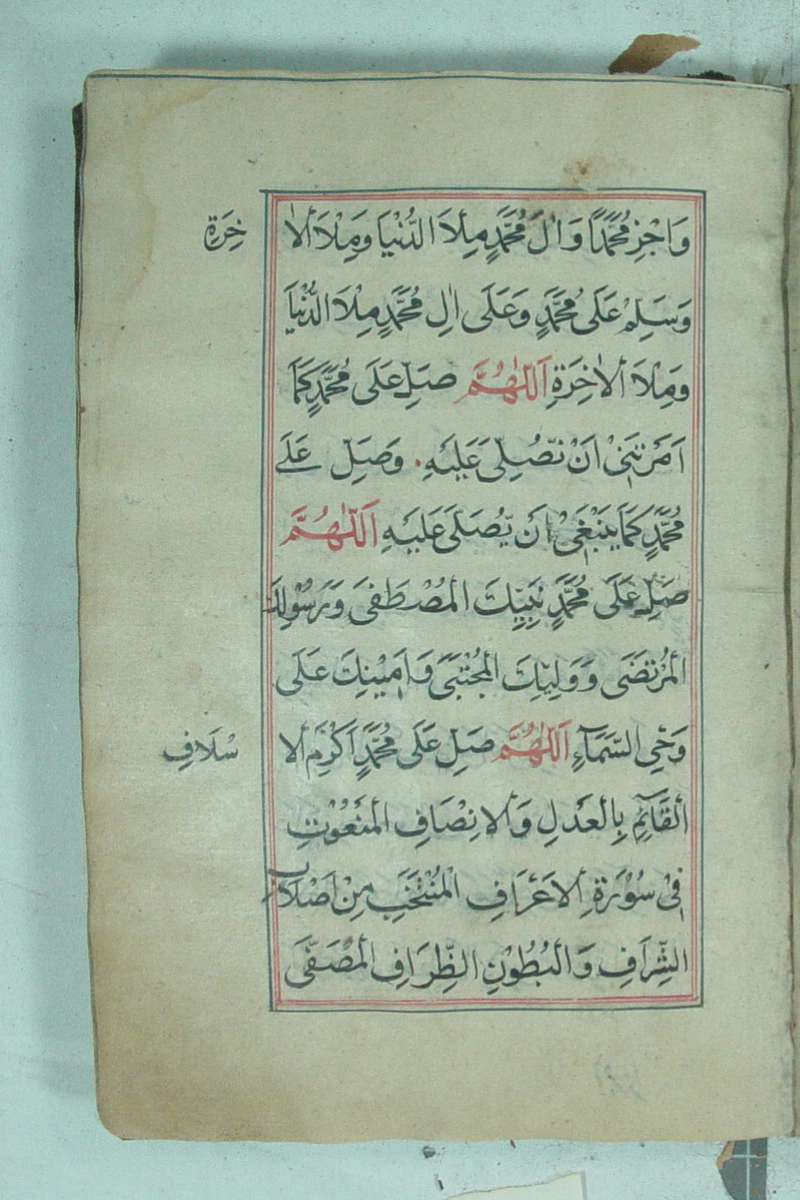 وَاجْزِ مُحَمَّدًا وَاٰلَ مُحَمَّدٍ مِلْاَ الدُّنْيَا وَمِلْاَ الْاٰ خِرَةِ
وَسَلِّمْ عَلَى مُحَمَّدٍ وَعَلَى اٰلِ مُحَمَّدٍ مِلْاَ الدُّنْيَا
وَمِلْاَ الْاٰخِرَةِ اَللّٰهُمَّ صَلِّ عَلَى مُحَمَّدٍ كَمَا
اَمَرْتَنِىْ اَنْ نُّصَلِّىَ عَلَيْهِ وَصَلِّ عَلَى
مُحَمَّدٍ كَمَا يَنْبَغِىْ اَنْ يُّصَلَّى عَلَيْهِ اَللّٰهُمَّ
صَلِّ عَلَى مُحَمَّدٍ نَبِيِّكَ الْمُصْطَفَى وَرَسُوْلِكَ
الْمُرْتَضَى وَوَلِيِّكَ الْمُجْتَبَى وَاَمِيْنِكَ عَلَى
وَحْىِ السَّمَآءِ اَللّٰهُمَّ صَلِّ عَلَى مُحَمَّدٍ اَكْرَمِ الْا سْلَافِ
الْقَآئِمِ بِالْعَدْلِ وَالْاِنْصَافِ الْمَنْعُوْتِ
فِىْ سُوْرَةِ الْاَعْرَافِ الْمُنْتَخَبِ مِنْ اَصْلَابِ
الشِّرَافِ وَالْبُطُوْنِ الظِّرَافِ الْمُصَفّٰى